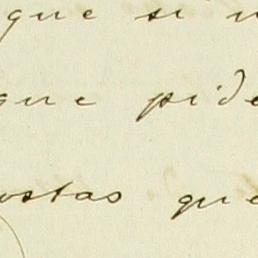 que si
que pide
ostas que